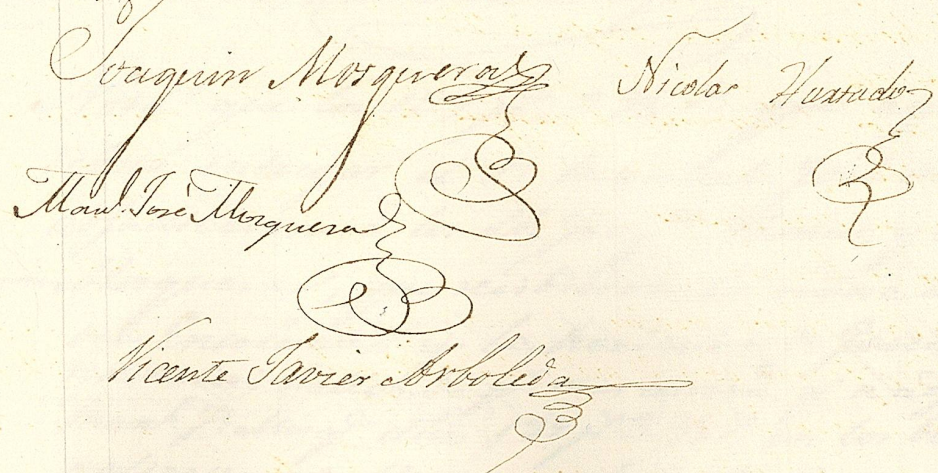 Joaquin Mosquera
Nicolas Hurtado
Manl. José Mosquera
Vicente Javier Arboleda